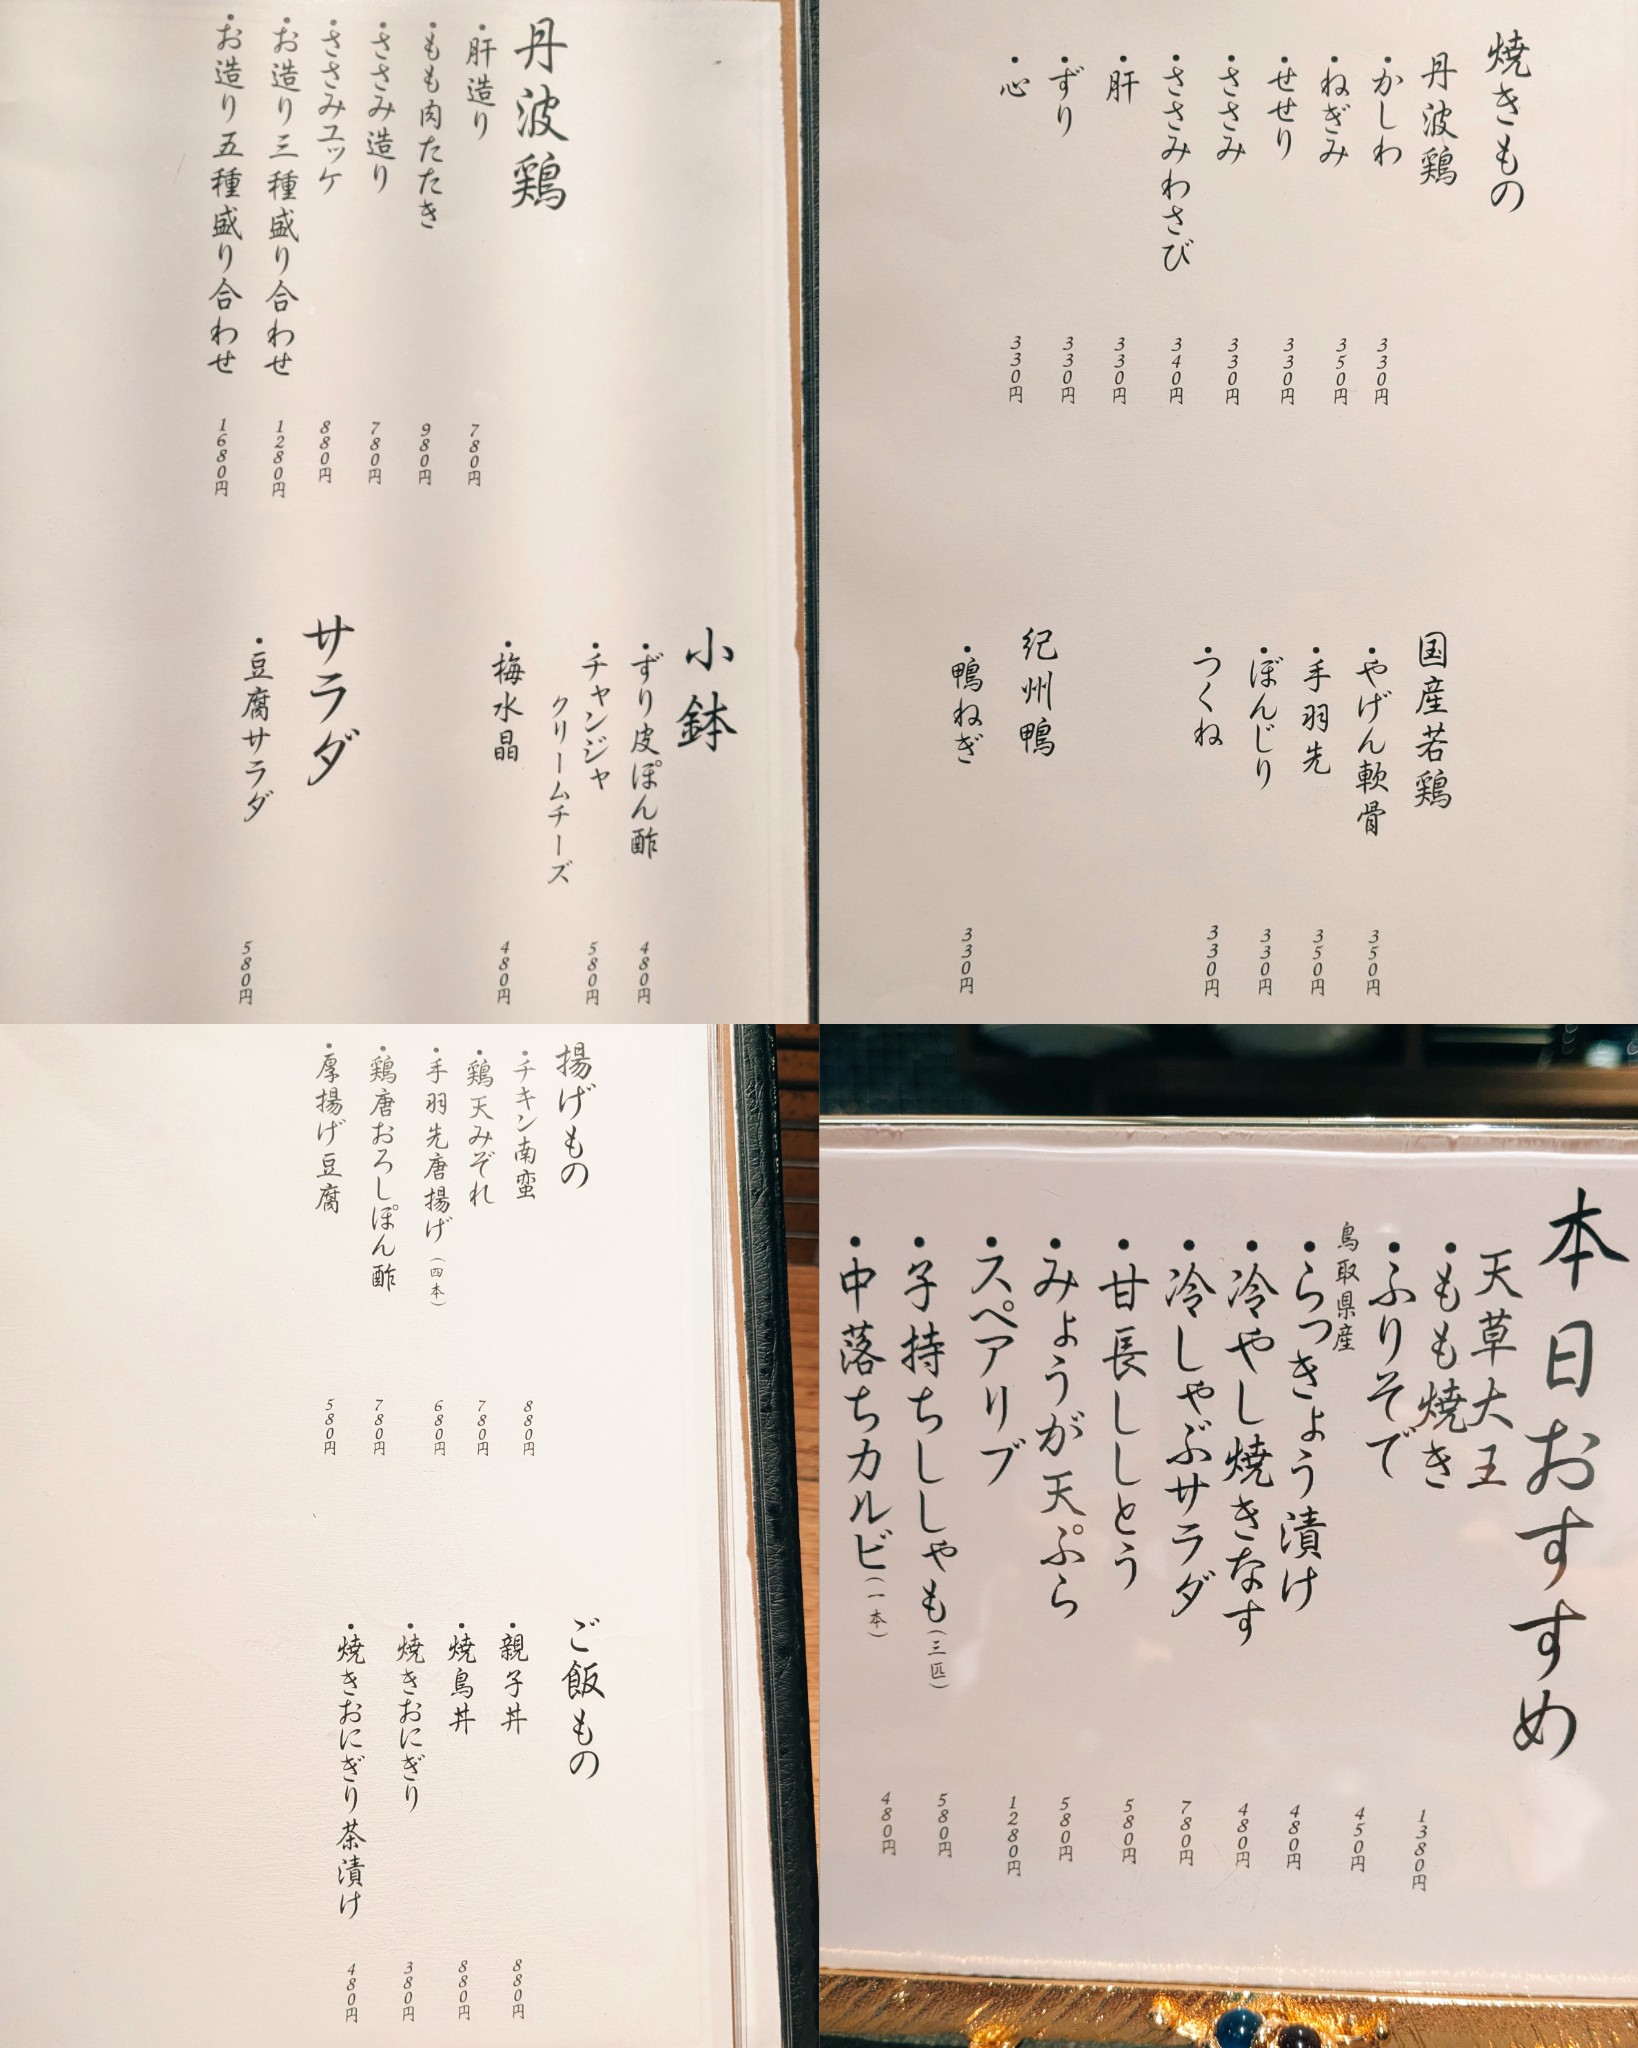 丹波鶏
・肝造り 780円
・もも肉たたき 980円
・ささみ造り 780円
・ささみユッケ 880円
・お造り三種盛り合わせ 1280円
・お造り五種盛り合わせ 1680円
小鉢
・ずり皮ぽん酢 480円
・チャンジャ
クリームチーズ 580円
・梅水晶 480円
サラダ
・豆腐サラダ 580円
焼きもの
丹波鶏
・かしわ 330円
・ねぎみ 350円
・せせり 330円
・ささみ 330円
・ささみわさび 340円
・肝 330円
・ずり 330円
・心 330円
国産若鶏
・やげん軟骨 350円
・手羽先 350円
・ぼんじり 330円
・つくね 330円
紀州鴨
・鴨ねぎ 330円
揚げもの
・チキン南蛮 880円
・鶏天みぞれ 780円
・手羽先唐揚げ（四本） 680円
・鶏唐おろしぽん酢 780円
・厚揚げ豆腐 580円
ご飯もの
・親子丼 880円
・焼鳥丼 880円
・焼きおにぎり 380円
・焼きおにぎり茶漬け 480円
本日おすすめ
天草大王
・もも焼き 1380円
・ふりそで 450円
鳥取県産
・らっきょう漬け 480円
・冷やし焼きなす 480円
・冷しゃぶサラダ 780円
・甘長ししとう 580円
・みょうが天ぷら 580円
・スペアリブ 1280円
・子持ちししゃも（三匹） 580円
・中落ちカルビ（一本） 480円